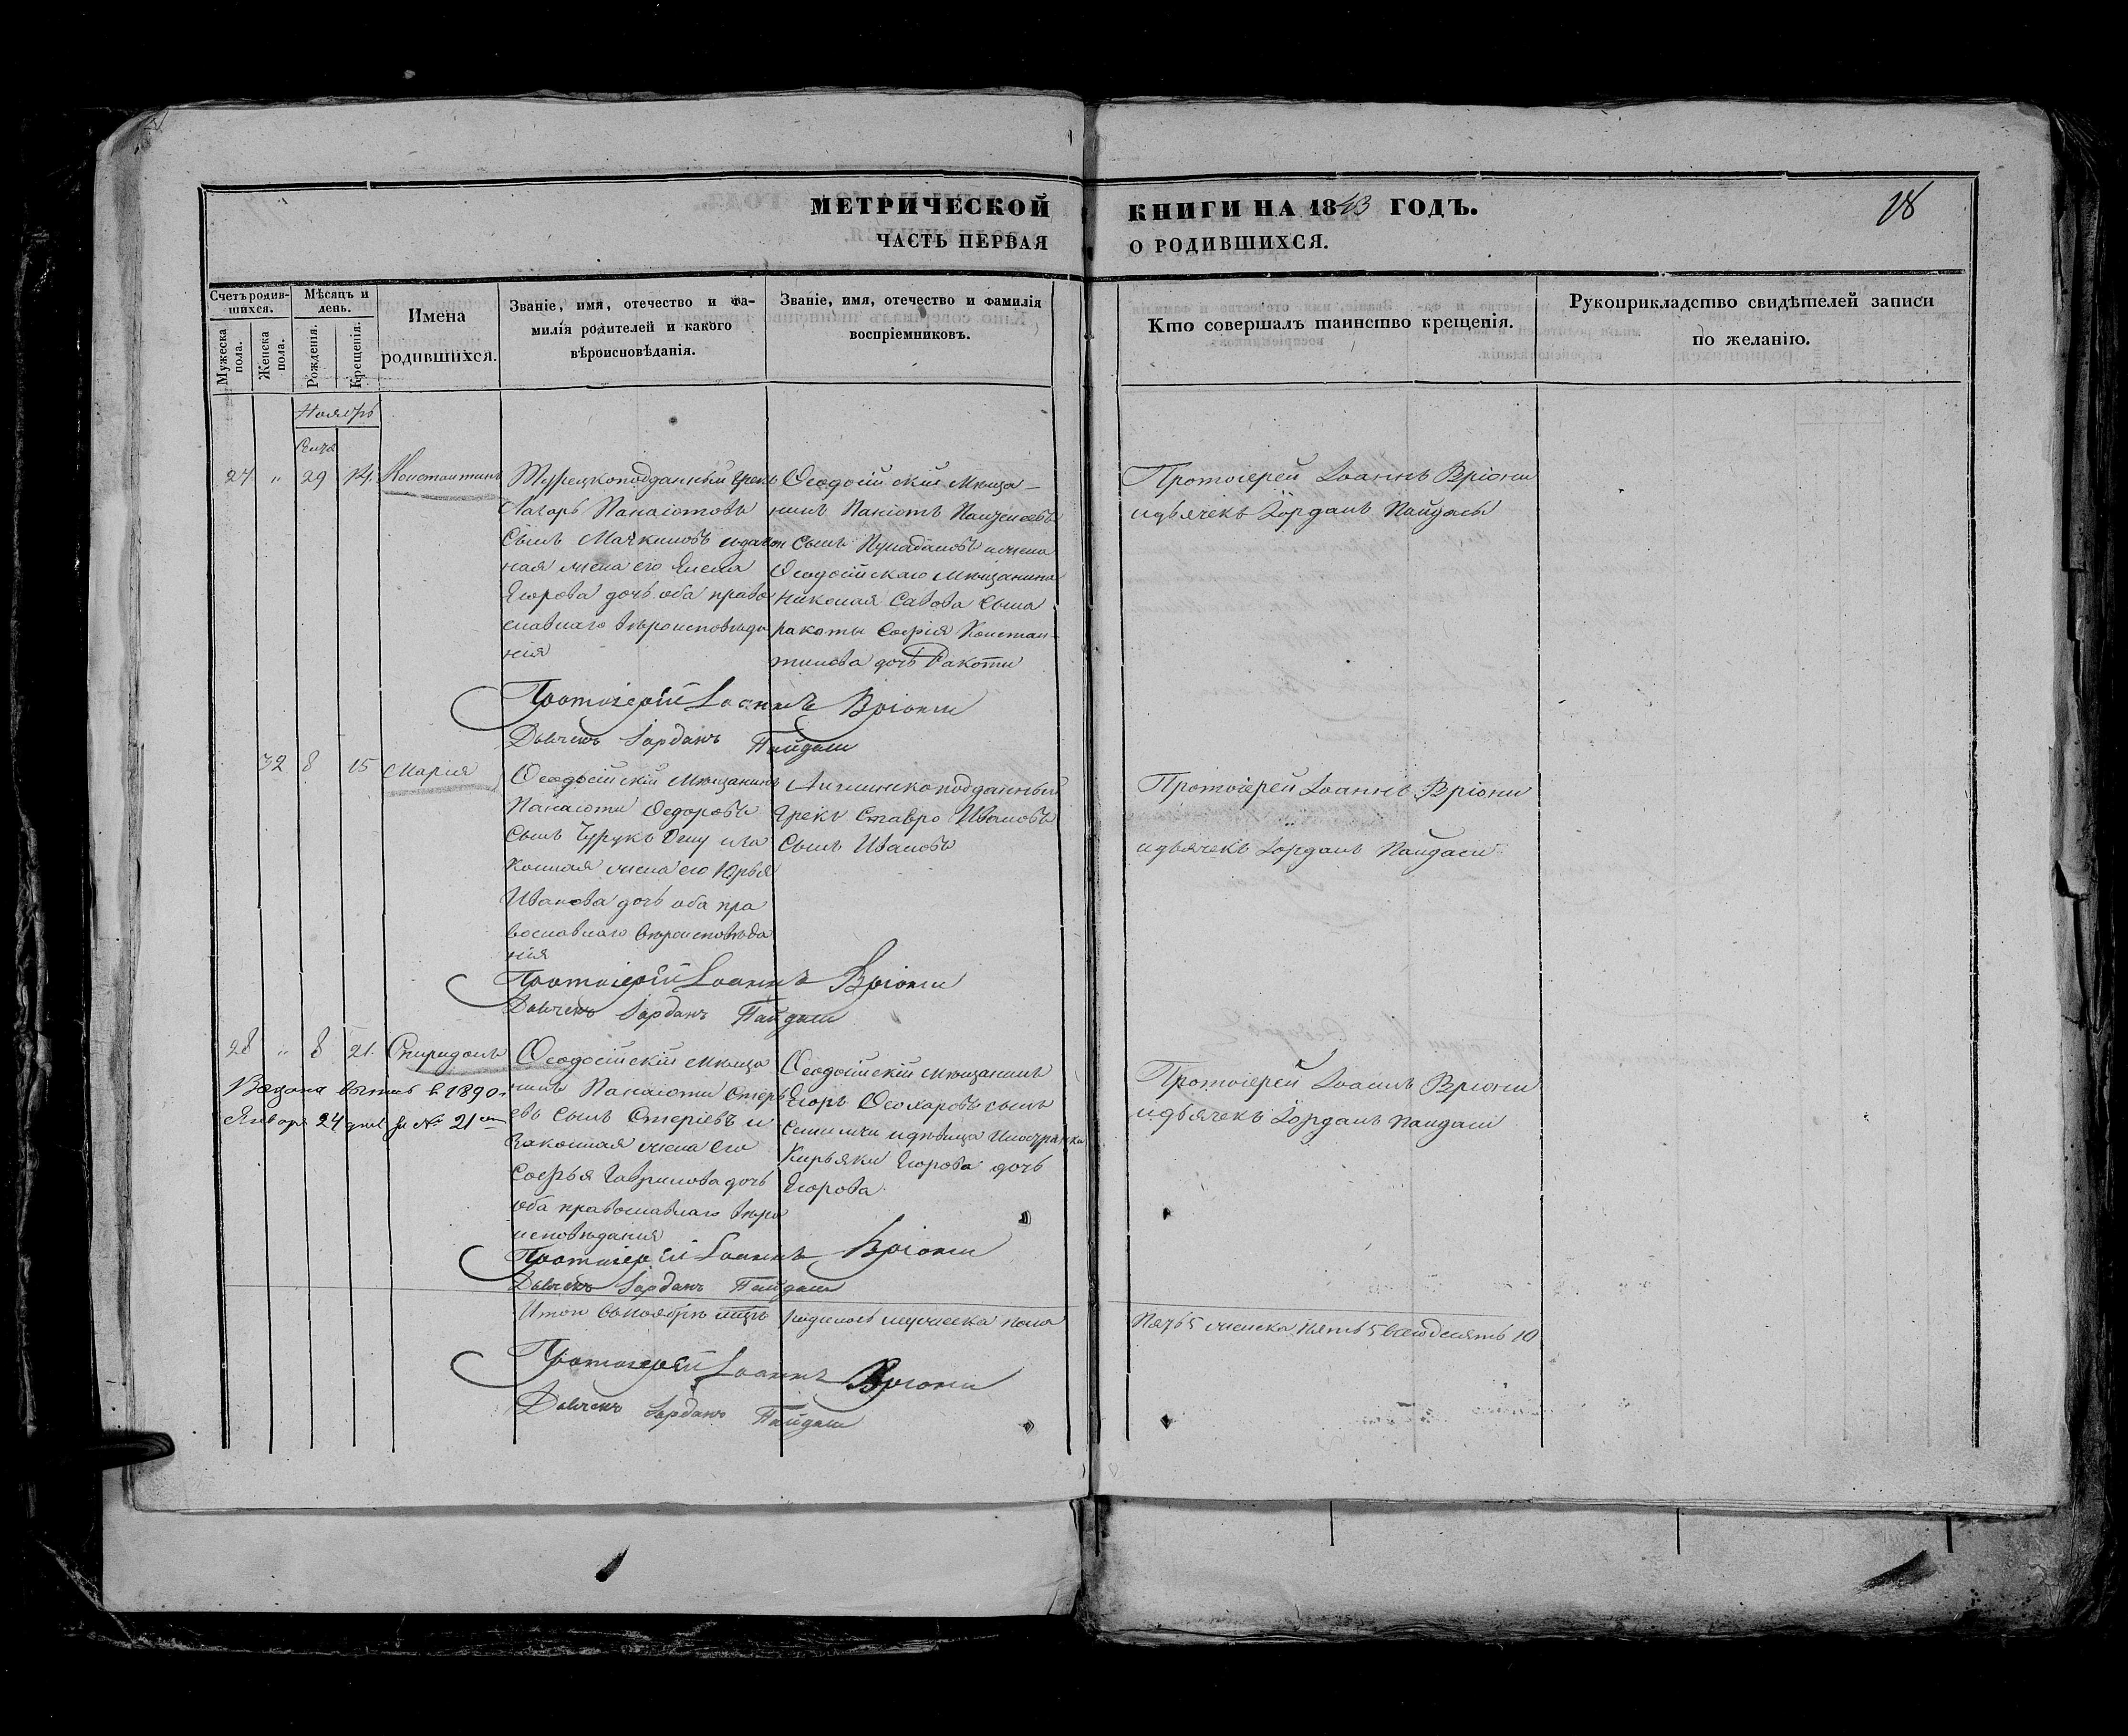 МЕТРИЧЕСКОЙ
ЧАСТЬ ПЕРВАЯ
КНИГИ НА 1843 ГОДЪ.
О РОДИВШИХСЯ.
18
Счетъ родив-
шихся.
Мужеска
пола.
Женска
пола.
Мѣсяцъ и
день.
Рожденія.
Крещенія.
Имена
родившихся.
Званіе, имя, отечество и фа-
милія родителей и какого
вѣроисповѣданія.
Званіе, имя, отечество и фамилія
воспріемниковъ.
Кто совершалъ таинство крещенія.
Рукоприкладство свидѣтелей записи
по желанію.
Ноябрь
27 " 29 14. Константинъ
Турецкоподданный грекъ
Лазарь Панаіотовъ
Сынъ Мачкиновъ изакон
ная жена его Елена
Егорова дочь оба право
славнаго вѣроисповѣда
нія
Ѳеодосійскій мѣща-
нинъ Паніотъ
Сынъ ижена
Ѳеодосійскаго мѣщанина
Николая Савова сына
Ракоти Софія Констан-
тинова дочь Ракоти
Протоіерей Іоаннъ Вріони
идьячекъ Іорданъ Пандази
Протоіерей Іоаннъ Вріони
Дьячекъ Іорданъ Пайдази
32 8 15 Марія
Ѳеодосійскій мѣщанинъ
Панаіоти Ѳедоровъ
Сынъ Чурукъ Оглу иза
конная жена его Юрья
Иванова дочь оба пра
вославнаго вѣроисповѣда
нія
Англинскоподданный
грекъ Ставро Ивановъ
Сынъ Ивановъ
Протоіерей Іоаннъ Вріони
идьячекъ Іорданъ Пандази
Протоіерей Іоаннъ Вріони
Дьячекъ Іорданъ Пайдази
28 " 8 21. Спиридонъ
Выдана выпись в 1890 г.
Января 24 дня за № 21
Ѳеодосійскій мѣща
нинъ Панаіоти Стері
евъ сынъ Стеріевъ и
законная жена его
Софья Гаврилова дочь
оба православнаго вѣро
исповѣданія
Ѳеодосійскій мѣщанинъ
Егоръ сынъ
идѣвица Иностранка
Кирьяки Егорова дочь
Егорова
Протоіерей Іоаннъ Вріони
идьячекъ Іорданъ Пандази
Протоіерей Іоаннъ Вріони
Дьячекъ Іорданъ Пайдази
Итого въноябрѣ мцѣ родилось мужеска пола
Пять 5 женска пять 5 всего десять 10
Протоіерей Іоаннъ Вріони
Дьячекъ Іорданъ Пайдази